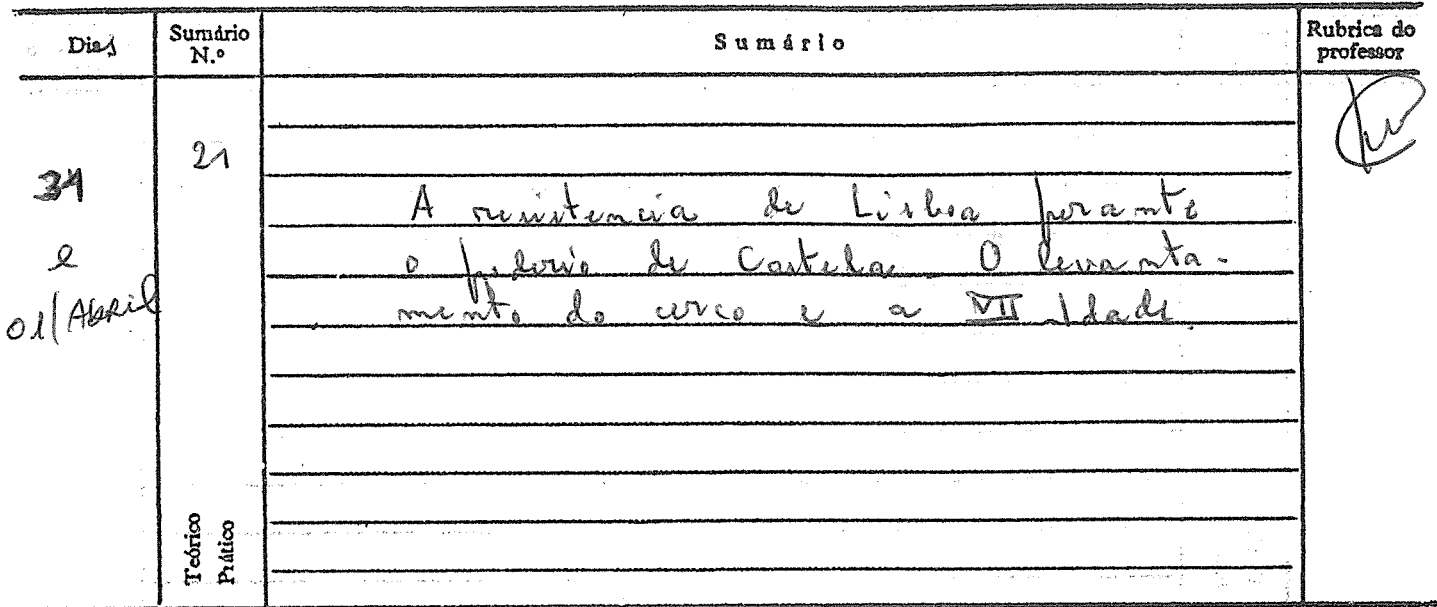 Dias
Sumário N.º
Sumário
Rubrica do professor
21
31
e
01/Abril
A resistencia de Lisboa perante
o poderio de Castela. O levanta-
mento do cerco e a VII Idade.
Teórico
Prático